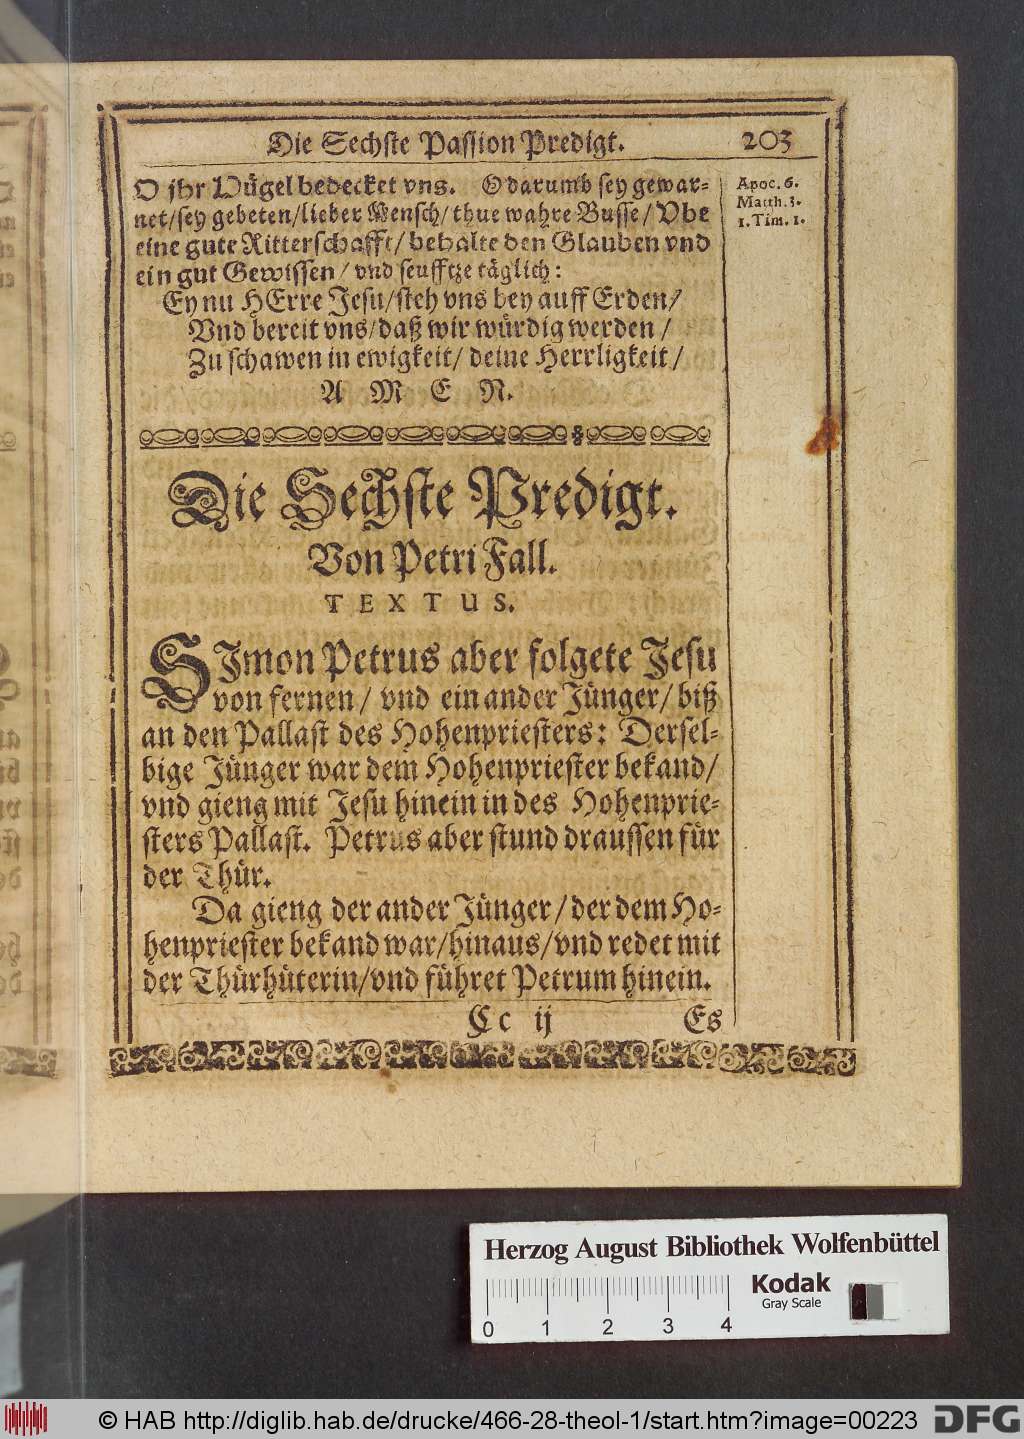 Die Sechste Passion Predigt. 203
O jhr Hügel bedecket vns. O darumb sey gewar-
net/sey gebeten/lieber Mensch/thue wahre Busse/Vbe
eine gute Ritterschafft/behalte den Glauben vnd
ein gut Gewissen/vnd seufftze täglich:
Ey nu HErre Jesu/steh vns bey auff Erden/
Vnd bereit vns/daß wir würdig werden/
Zu schawen in ewigkeit/deine Herrligkeit/
A M E N.
Apoc. 6.
Matth. 3.
1. Tim. 1.
Die Sechste Predigt.
Von Petri Fall.
TEXTUS.
SImon Petrus aber folgete Jesu
von fernen/vnd ein ander Jünger/biß
an den Pallast des Hohenpriesters: Dersel-
bige Jünger war dem Hohenpriester bekand/
vnd gieng mit Jesu hinein in des Hohenprie-
sters Pallast. Petrus aber stund draussen für
der Thür.
Da gieng der ander Jünger/der dem Ho-
henpriester bekand war/hinaus/vnd redet mit
der Thürhüterin/vnd führet Petrum hinein.
Cc ij Es
Herzog August Bibliothek Wolfenbüttel
Kodak
Gray Scale
0 1 2 3 4
© HAB http://diglib.hab.de/drucke/466-28-theol-1/start.htm?image=00223 DFG